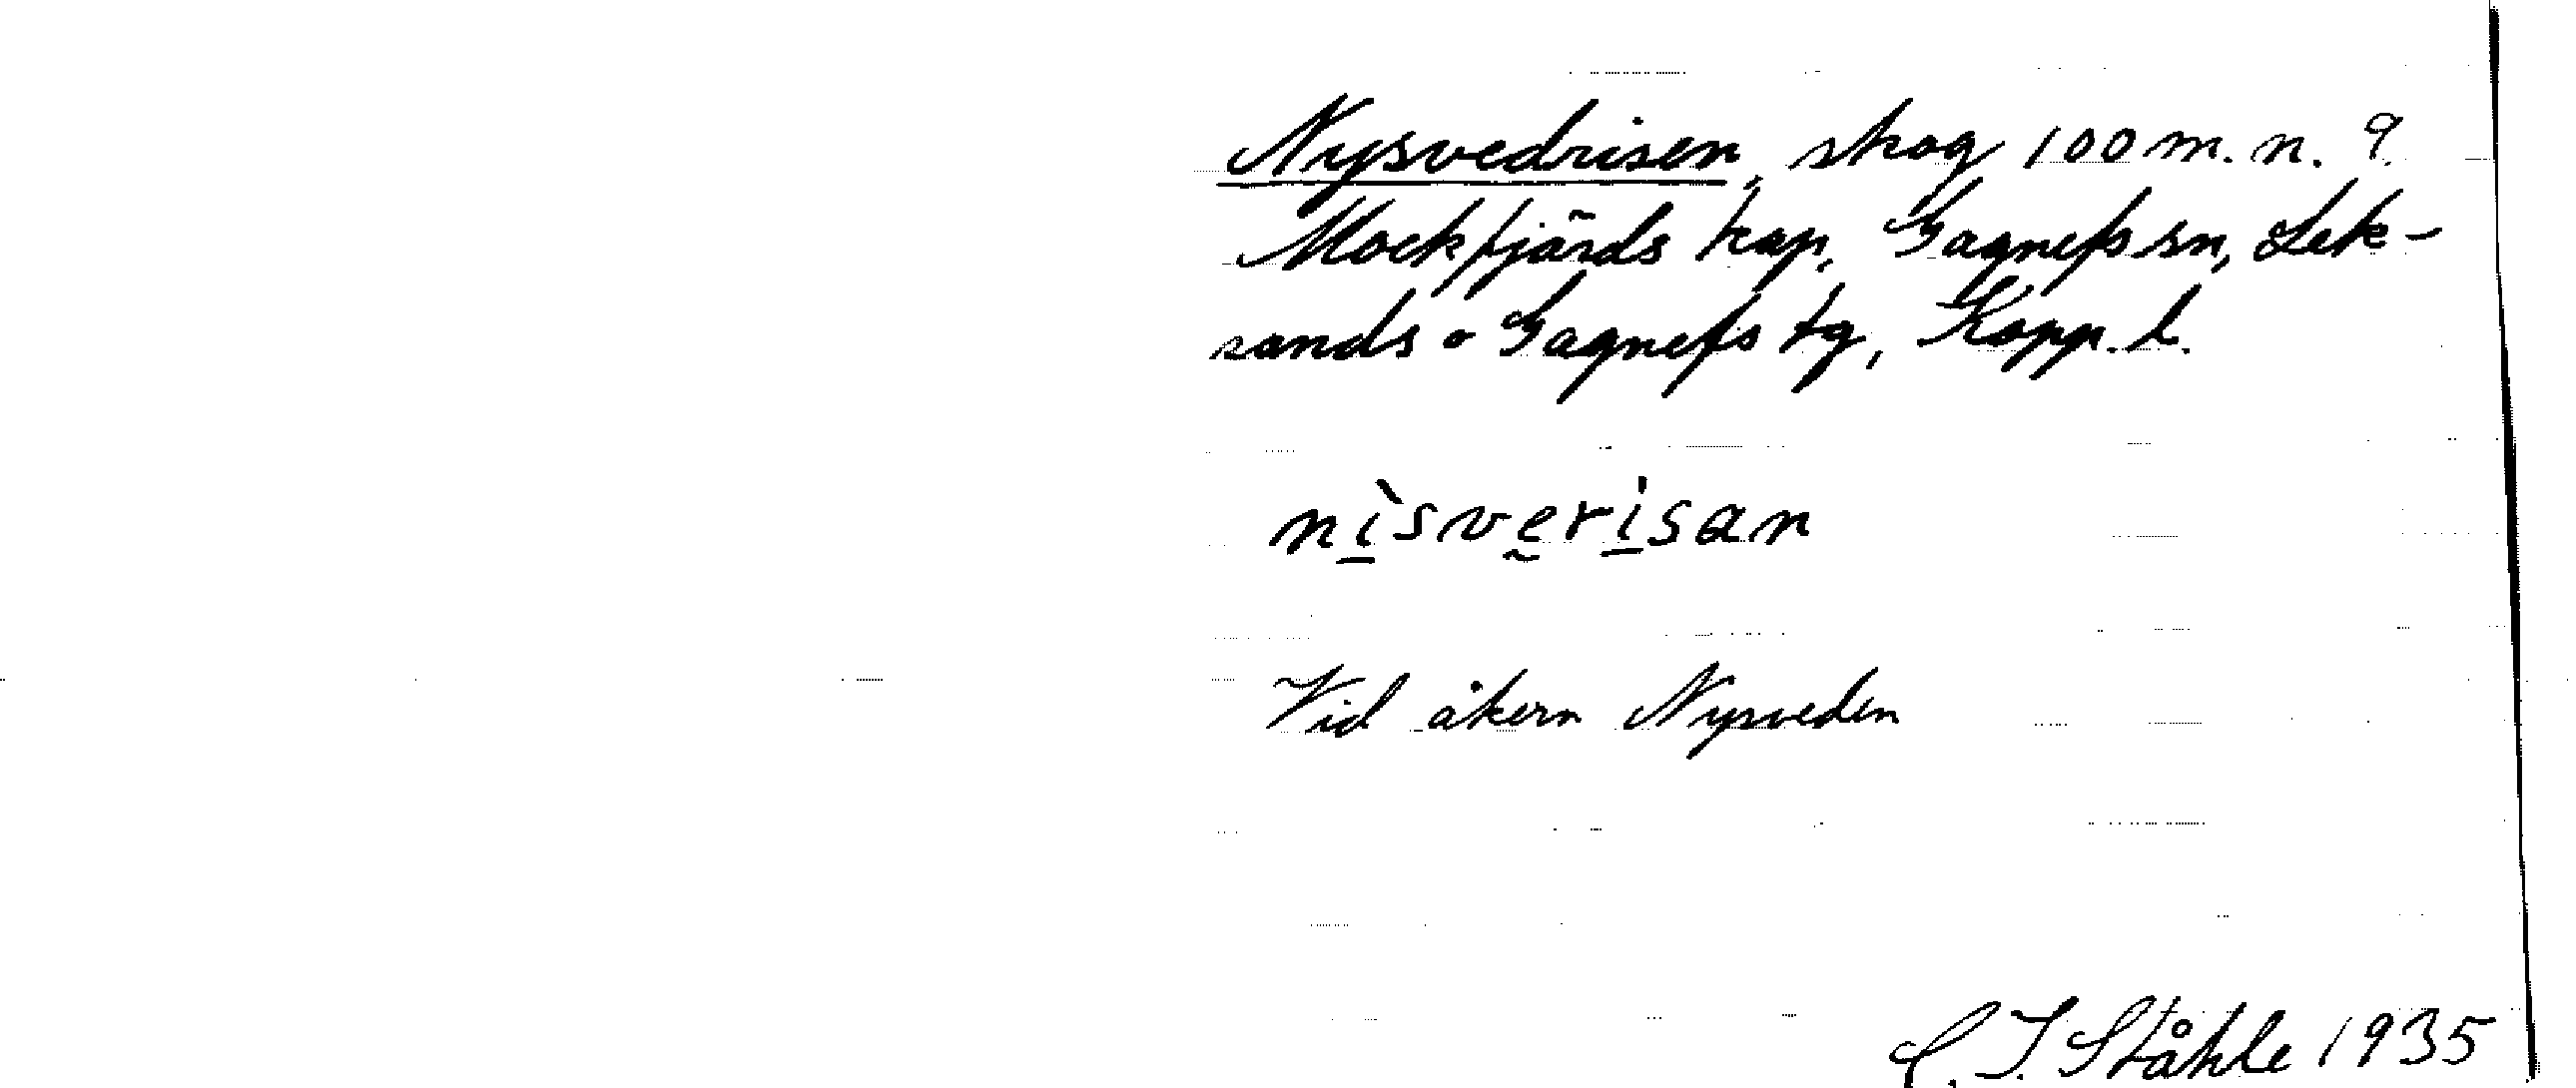 Nysvedrisen, skog 100 m. n. 9.
Mockfjärds kap, Gagnefs sn, Lek-
sands o Gagnefs tg, Kopp. l.
nìsverisan
Vid åkern Nysveden
C. I. Ståhle 1935